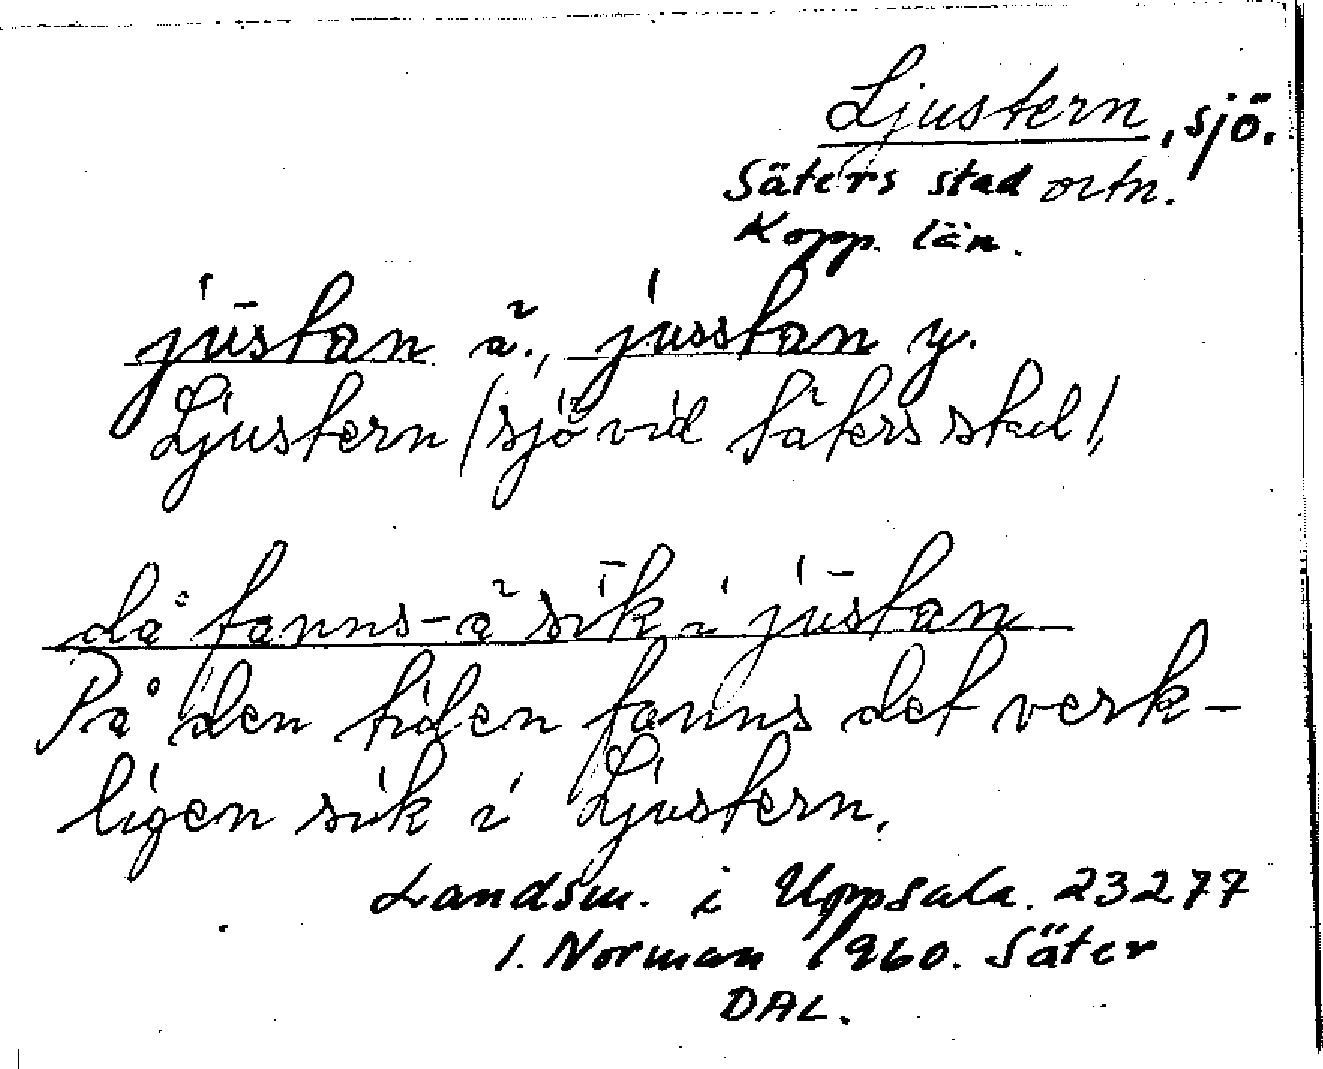 Ljustern, sjö.
Säters stad ortn.
Kopp. län.
jūstan ä., jusstan y.
Ljustern /sjö vid Säters stad/,
då fanns-ä sīk i jūstan
På den tiden fanns det verk-
ligen sik i Ljustern.
Landsm. i Uppsala. 23277
I. Norman 1960. Säter
DAL.